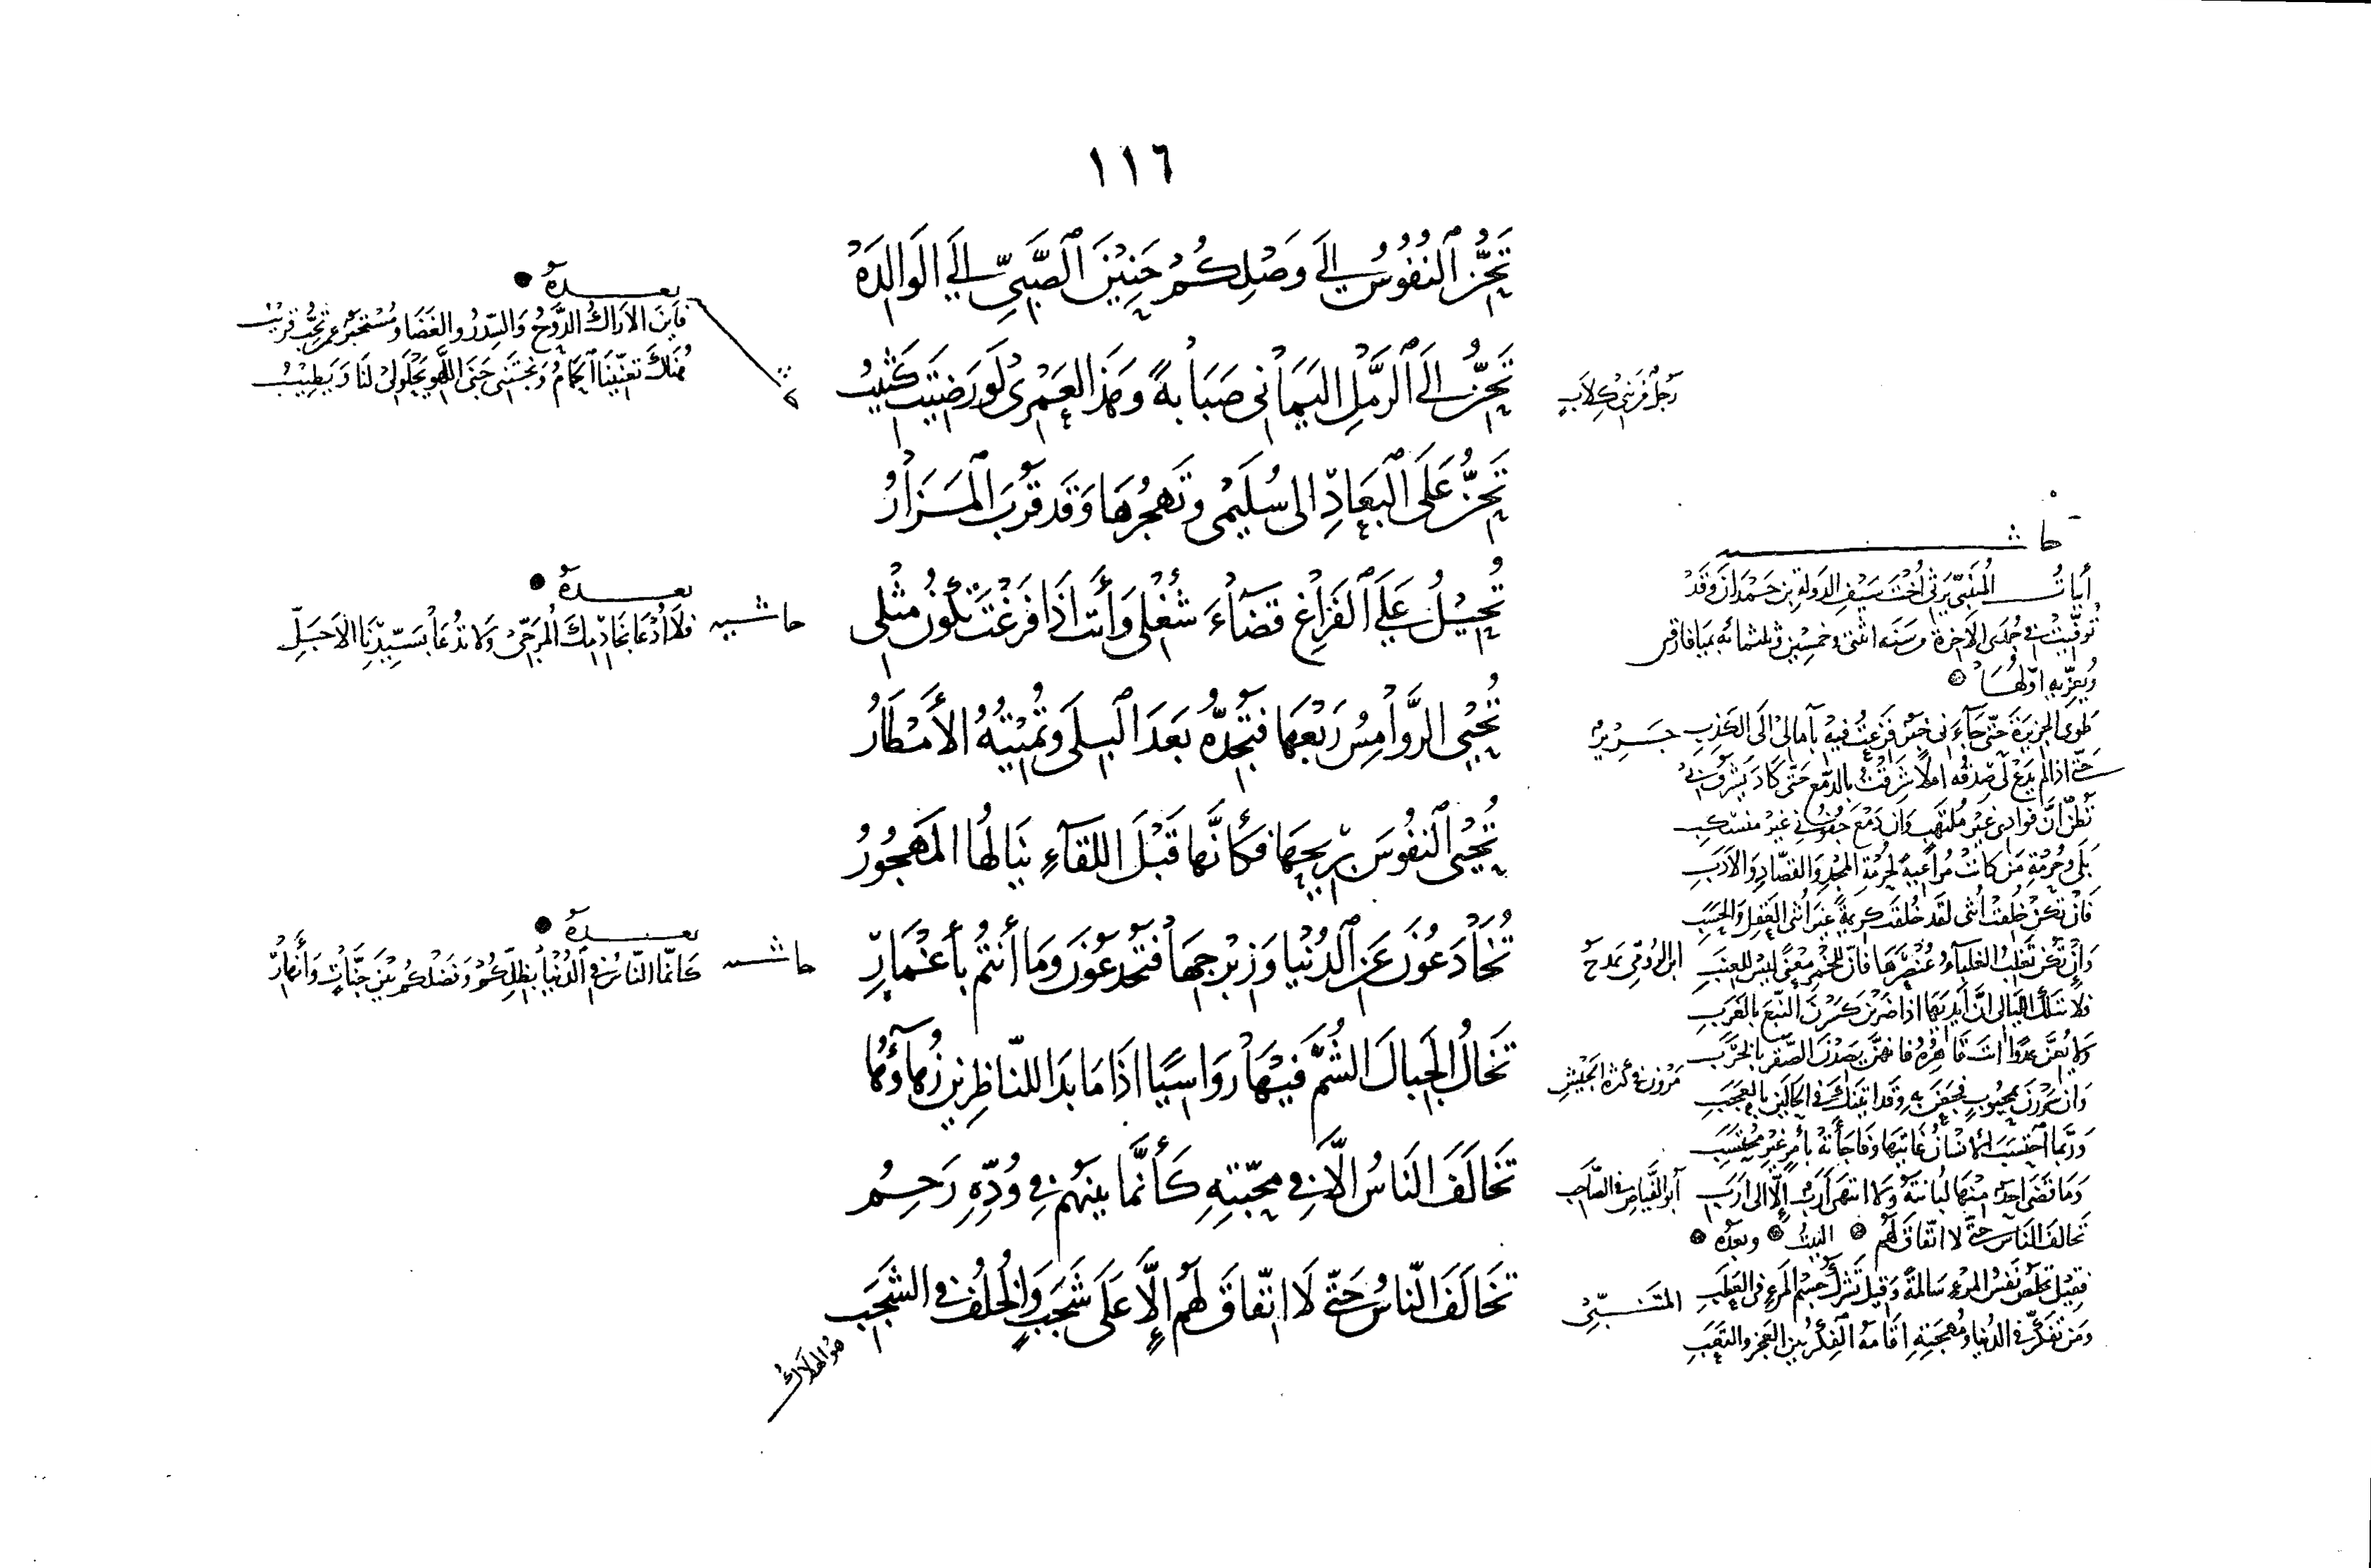 ١١٦
تَحِنُّ النُّفُوسُ إِلَى وَصْلِكُمُ حَنِينَ الصَّبِيِّ إِلَى الوَالِدَهْ
رَجُلٌ مِنْ بَنِي كِلَابٍ
تَحِنُّ إِلَى الرَّمْلِ اليَمَانِي صَبَابَةً وَهَذَا لَعَمْرِي لَو رَضِيتَ كَثِيبُ
تَحِنُّ عَلَى البِعَادِ إِلَى سُلَيْمَى وَتَهْجُرُهَا وَقَدْ قَرُبَ المَزَارُ
تُحِيلُ عَلَى الفَرَاغِ قَضَاءَ شُغْلِي وَأَنْتَ إِذَا فَرَغْتَ تَكُونُ مِثْلِي
جَرِيرٌ
تُحْيِي الرَّوَامِسُ رَبْعَهَا فَتُجِدُّهُ بَعْدَ البِلَى وَتُمِيتُهُ الأَمْطَارُ
تُحْيِي النُّفُوسَ بِرِيحِهَا فَكَأَنَّهَا قَبْلَ اللِّقَاءِ يَنَالُهَا المَهْجُورُ
ابن الرُّومِي يَمدَحُ
تُخَادَعُونَ عَنِ الدُّنْيَا وَزِبْرِجِهَا فَتُخْدَعُونَ وَمَا أَنْتُمْ بِأَغْمَارِ
تَخَالُ الجِبَالَ الشُّمَّ فِيهَا رَوَاسِيًا إِذَا مَا بَدَا لِلنَّاظِرِينَ زُهَاؤُهَا
تَخَالَفَ النَّاسُ إِلَّا فِي مَحَبَّتِهِ كَأَنَّمَا بَيْنَهُمْ فِي وُدِّهِ رَحِمُ
المُتَنَبِّي
تَخَالَفَ النَّاسُ حَتَّى لَا اتِّفَاقَ لَهُمْ إِلَّا عَلَى شَجَبٍ وَالخُلْفُ فِي الشَّجَبِ
هُوَ الهَلَاكُ
بعده
فَأَيْنَ الأَرَاكُ الدَّوْحُ وَالسِّدْرُ وَالغَضَا وَمُسْتَخْبَرٌ عَمَّنْ تُحِبُّ قَرِيبُ
هُنَاكَ تُغَنِّينَا الحَمَامُ وَنَجْتَنِي جَنَى اللَّهْوِ يَحْلَوْلِي لَنَا وَيَطِيبُ
حاشيه
بعده
فَلَا أُدْعَا بِخَادِمِكَ المُرَجَّى وَلَا تُدْعَا بِسَيِّدِنَا الأَجَلِّ
حاشيه
بعده
كَأَنَّمَا النَّاسُ فِي الدُّنْيَا بِظِلِّكُمُ وَفَضْلِكُمْ بَيْنَ جَنَّاتٍ وَأَنْهَارُ
حاشيه
أبيات المُتَنَبِّي يَرْثِي أُخْتَ سَيْفِ الدَولَةِ بن حَمْدَان وَقَدْ
تُوُفِّيَتْ في جُمَادَى الآخِرَة من سَنَة اثنتي وخمسين وثلثمائه بميافارقين
وَيُعَزِّيهِ أَوَّلُهَا
طَوَى الجَزِيرَةَ حَتَّى جَاءَنِي خَبَرٌ فَزِعْتُ فِيهِ بِآمَالِي إِلَى الكَذِبِ
حَتَّى إِذَا لَمْ يَدَعْ لِي صِدْقُهُ أَمَلًا شَرِقْتُ بِالدَّمْعِ حَتَّى كَادَ يَشْرَقُ بِي
تَظُنُّ أَنَّ فُؤَادِي غَيْرُ مُلْتَهِبٍ وَأَنَّ دَمْعَ جُفُونِي غَيْرُ مُنْسَكِبِ
بَلَى وَحُرْمَةِ مَنْ كَانَتْ مُرَاعِيَةً لِحُرْمَةِ المَجْدِ وَالقُصَّادِ وَالأَدَبِ
فَإِنْ تَكُنْ خُلِقَتْ أُنْثَى لَقَدْ خُلِقَتْ كَرِيمَةً غَيْرَ أُنْثَى العَقْلِ وَالحَسَبِ
وَإِنْ تَكُنْ تَغْلِبُ الغَلْبَاءُ عُنْصُرَهَا فَإِنَّ لِلخَمْرِ مَعْنًى لَيْسَ لِلعِنَبِ
فَلَا تَنَلْكَ اللَّيَالِي إِنَّ أَيْدِيَهَا إِذَا ضَرَبْنَ كَسَرْنَ النَّبْعَ بِالغَرَبِ
وَلَا يُعِنَّ عَدُوًّا أَنْتَ قَاهِرُهُ فَإِنَّهُنَّ يَصِدْنَ الصَّقْرَ بِالخَرَبِ
وَإِنْ سَرَرْنَ بِمَحْبُوبٍ فَجَعْنَ بِهِ وَقَدْ أَتَيْنَكَ فِي الحَالَيْنِ بِالعَجَبِ
وَرُبَّمَا احْتَسَبَ الإِنْسَانُ غَايَتَهَا وَفَاجَأَتْهُ بِأَمْرٍ غَيْرِ مُحْتَسَبِ
وَمَا قَضَى أَحَدٌ مِنْهَا لُبَانَتَهُ وَلَا انْتَهَى أَرَبٌ إِلَّا إِلَى أَرَبِ
تَخَالَفَ النَّاسُ حَتَّى لا اتِّفَاقَ لَهُمْ البيتُ وبعده
فَقِيلَ تَخْلُصُ نَفْسُ المَرْءِ سَالِمَةً وَقِيلَ تَشْرَكُ جِسْمَ المَرْءِ فِي العَطَبِ
وَمَنْ تَفَكَّرَ فِي الدُّنْيَا وَمُهْجَتِهِ أَقَامَهُ الفِكْرُ بَيْنَ العَجْزِ وَالتَعَبِ